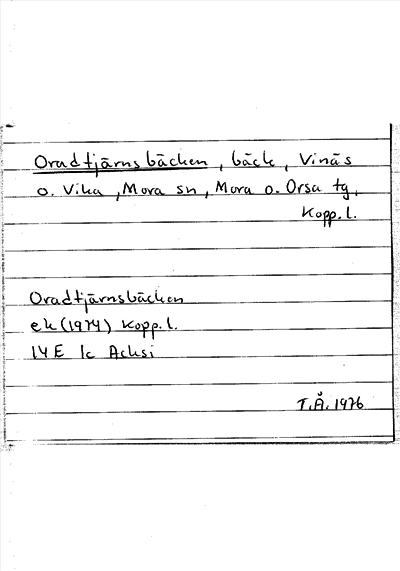 Oradtjärnsbäcken, bäck, Vinäs
o. Vika, Mora sn, Mora o. Orsa tg,
Kopp.l.
Oradtjärnsbäcken
ek (1974) Kopp.l.
14E 1c Acksi
T.Å. 1976